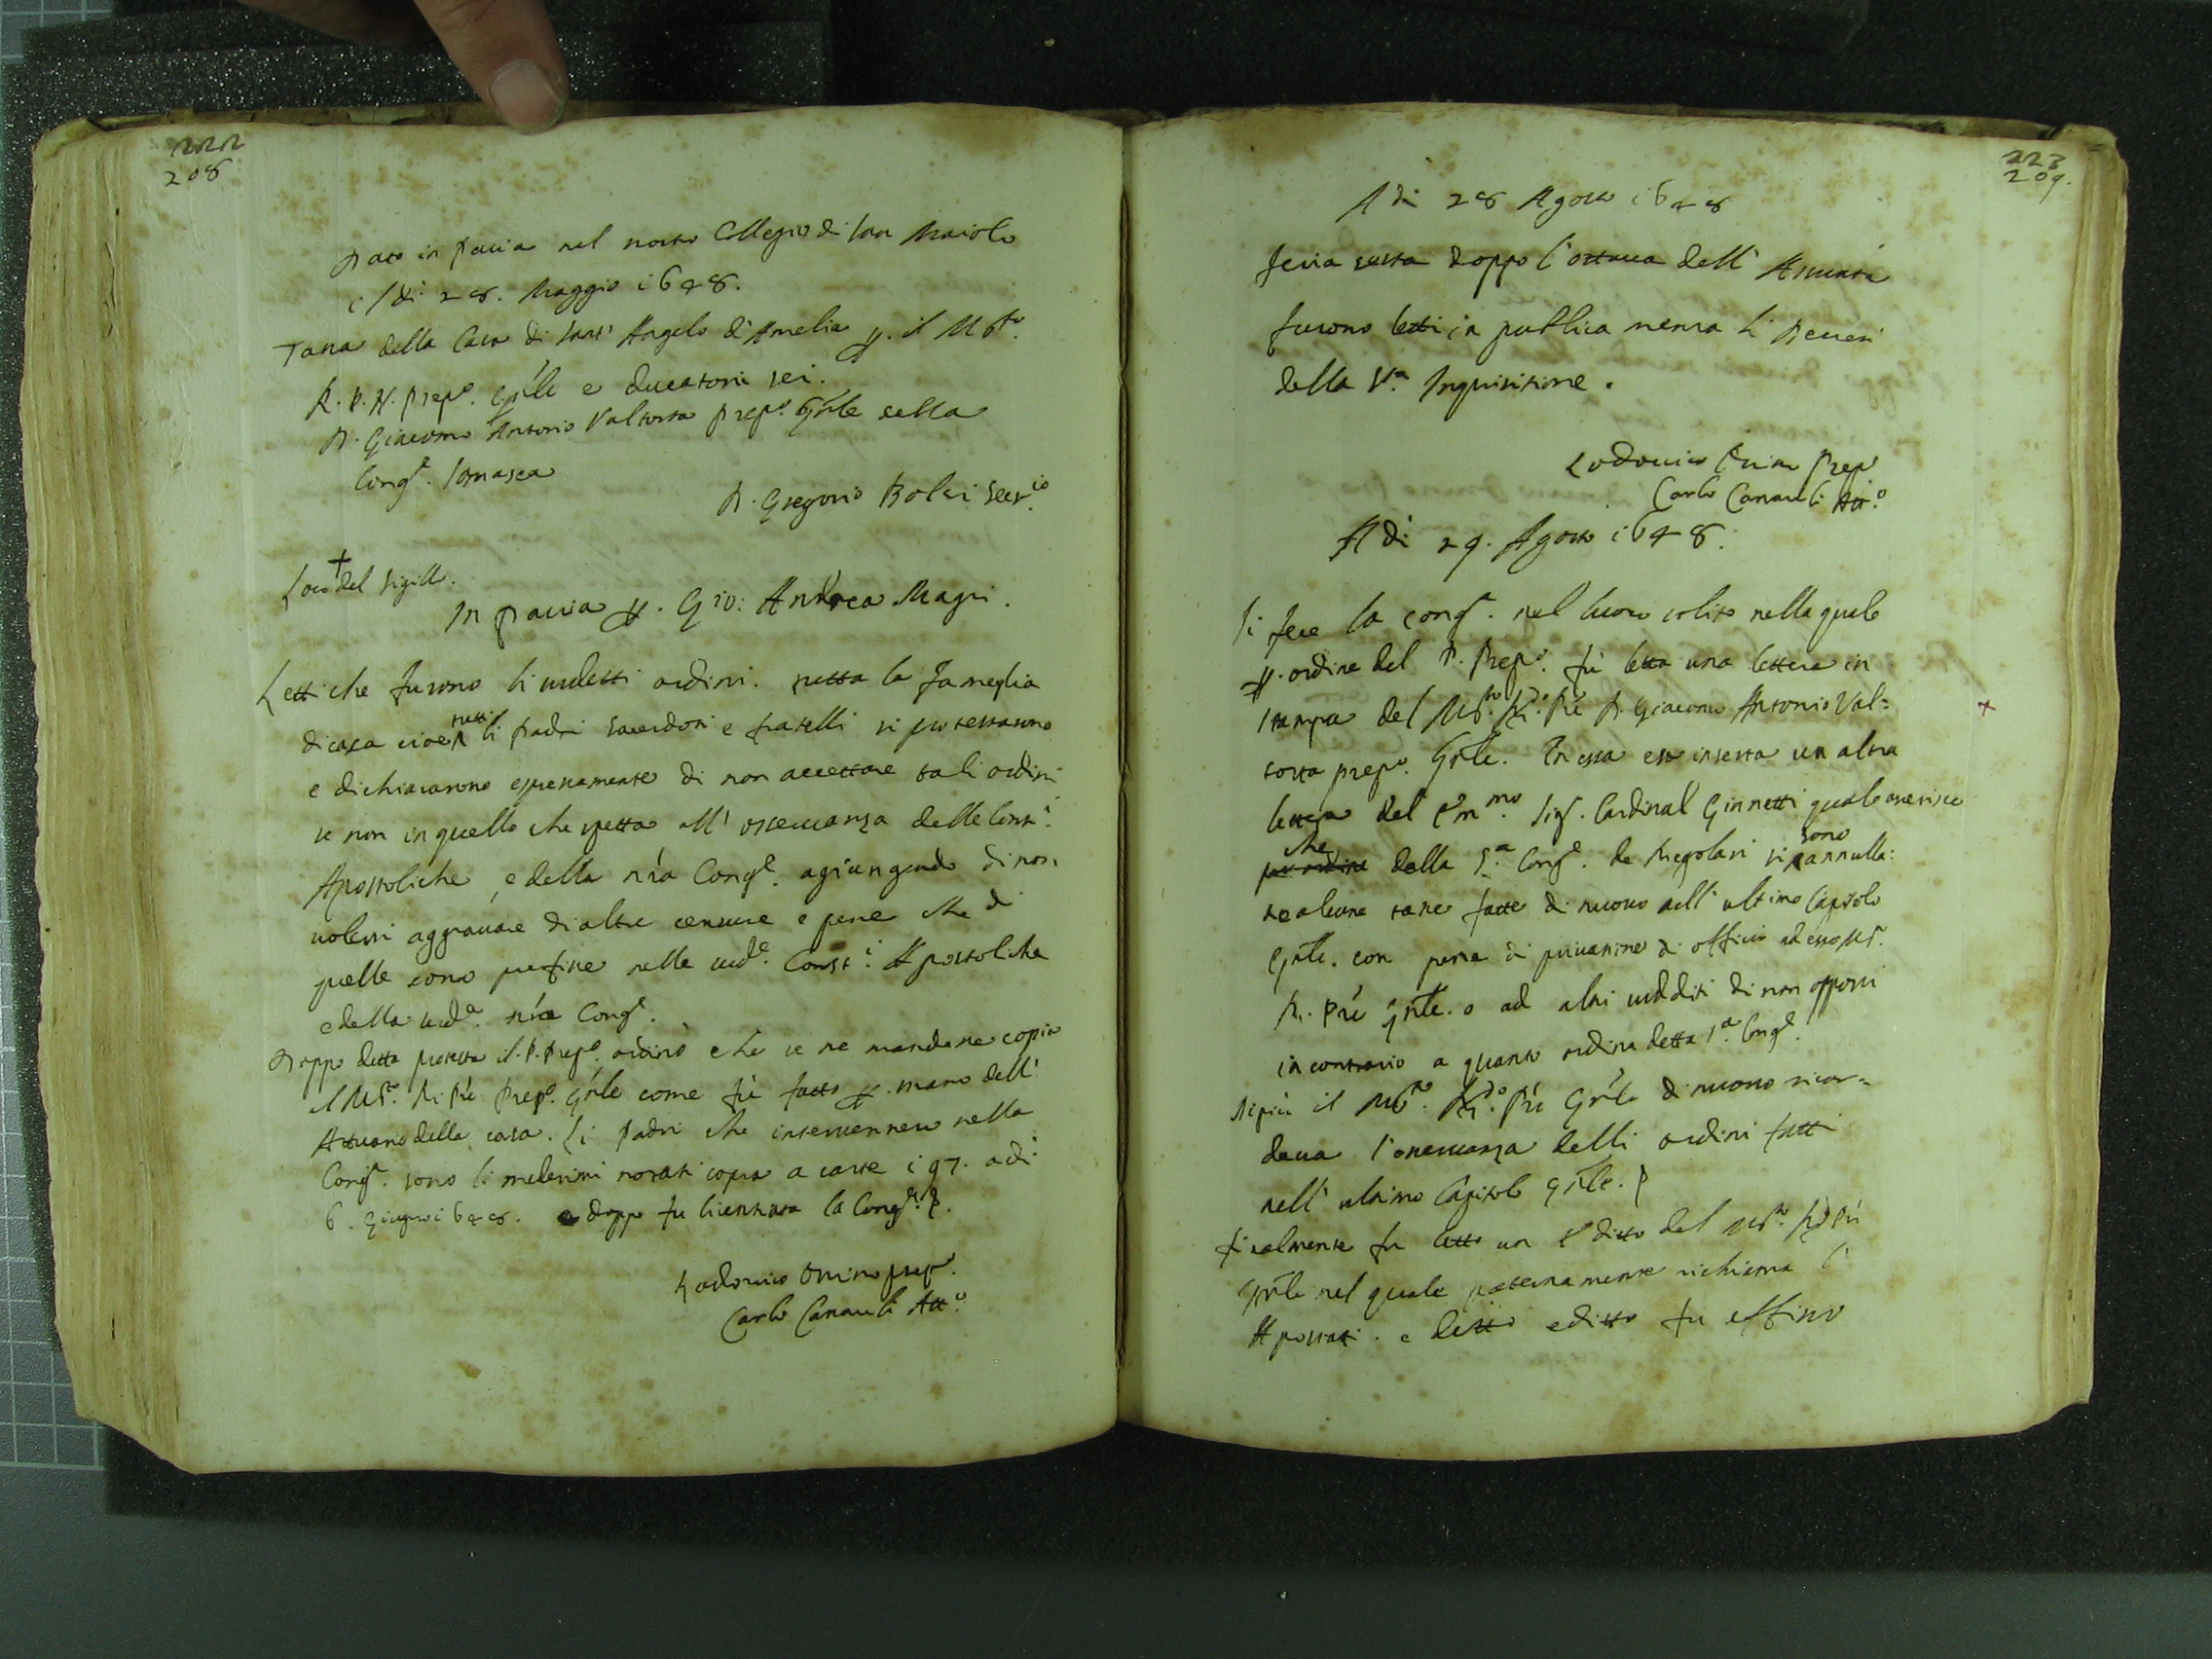 222
208
Dato in Pavia nel nostro Collegio di San Maiolo
il dì 28. Maggio 1648.
Tassa della Casa di Sant' Angelo d'Amelia p. il M.to
R. P. N. Prep.o G'nle e ducatoni sei.
D. Giacomo Antonio Valtorta Prep.o G'nle della
Cong.e Somasca
D. Gregorio Bolzi Secr.io
+
Loco del Sigillo.
In Pavia p. Gio: Andrea Magri.
Letti che furono li sudetti ordini. tutta la fameglia
di casa cioè tutti li Padri Sacerdoti e fratelli si protestarono
e dichiararono espressamente di non accettare tali ordini
se non in quello che spetta all' osservanza delle Const.i
Apostoliche, e della n'ra Cong.e agiungendo di non
volersi aggravare di altre censure e pene che di
quelle sono prefisse nelle sud.e Const.i Apostoliche
e della sud.a n'ra Cong.e
Doppo detta protesta il P. Prep.o ordinò che se ne mandasse copia
al M.to R. P're Prep.o G'nle come fù fatto p. mano dell'
Attuario della casa. Li Padri che intervennero nella
Cong.e sono li medesimi notati sopra a carte 197. adi
6. Giugno 1648. e doppo fu licentiata la Cong.e
Lodovico Prep.o
Carlo Canauli Att.o
223
209.
A di 28 Agosto 1648
feria sesta doppo l'ottava dell' Assunta
furono letti in publica mensa li Decreti
della S.ta Inquisitione.
Lodovico Prep.o
Carlo Canauli Att.o
A di 29. Agosto 1648.
Si fece la cong.e nel luoco solito nella quale
p. ordine del P. Prep.o fù letta una lettera in
stampa del M.to R.do P're D. Giacomo Antonio Val:
torta prep.o G'nle. In essa era inserta un altra
lettera del Em.mo Sig.r Cardinal Ginnetti quale asserisce
che per ordine della S.a Cong.e de Regolari si sono annulla:
te alcune tasse fatte di nuovo nell' ultimo Capitolo
G'nle. con pena di privatione di officio ad esso M.to
R. P're G'nle. o ad altri sudditi di non opporsi
in contrario a quanto ordina detta S.a Cong.e
Di più il M.to R.do P're G'nle di nuovo ricor=
dava l'osservanza delli ordini fatti
nell' ultimo Capitolo G'nle.
finalmente fu letto un Editto del M.to R.do P're
G'nle nel quale paternamente richiama l'
Apostati. e detto editto fu affisso